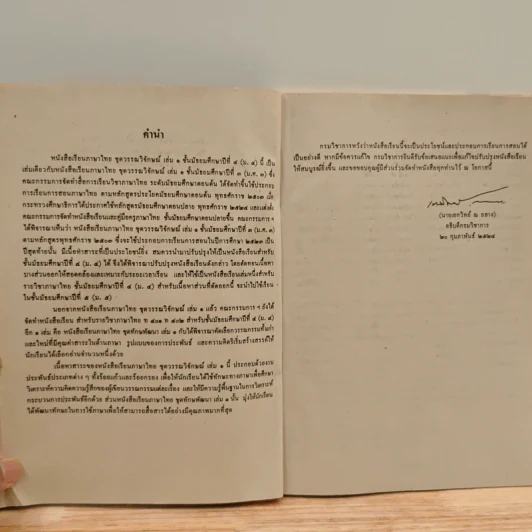 คำนำ
หนังสือเรียนภาษาไทย ชุดวรรณวิจักษณ์ เล่ม ๑ ชั้นมัธยมศึกษาปีที่ ๔ (ม. ๔) นี้ เป็น
เล่มเดียวกับหนังสือเรียนภาษาไทย ชุดวรรณวิจักษณ์ เล่ม ๑ ชั้นมัธยมศึกษาปีที่ ๓ (ม.ศ. ๓) ซึ่ง
คณะกรรมการจัดทำสื่อการเรียนวิชาภาษาไทย ระดับมัธยมศึกษาตอนต้น ได้จัดทำขึ้นใช้ประกอบ
การเรียนการสอนภาษาไทย ตามหลักสูตรประโยคมัธยมศึกษาตอนต้น พุทธศักราช ๒๕๐๓ เมื่อ
กระทรวงศึกษาธิการได้ประกาศใช้หลักสูตรมัธยมศึกษาตอนปลาย พุทธศักราช ๒๕๒๔ และแต่งตั้ง
คณะกรรมการจัดทำหนังสือเรียนและคู่มือครูภาษาไทย ชั้นมัธยมศึกษาตอนปลายขึ้น คณะกรรมการ ฯ
ได้พิจารณาเห็นว่า หนังสือเรียนภาษาไทย ชุดวรรณวิจักษณ์ เล่ม ๑ ชั้นมัธยมศึกษาปีที่ ๓ (ม.ศ.๓)
ตามหลักสูตรพุทธศักราช ๒๕๐๓ ซึ่งจะใช้ประกอบการเรียนการสอนในปีการศึกษา ๒๕๒๓ เป็น
ปีสุดท้ายนั้น มีเนื้อหาสาระที่เป็นประโยชน์ยิ่ง สมควรนำมาปรับปรุงให้เป็นหนังสือเรียนสำหรับ
ชั้นมัธยมศึกษาปีที่ ๔ (ม. ๔) ได้ จึงได้พิจารณาปรับปรุงหนังสือเรียนดังกล่าว โดยตัดทอนเนื้อหา
บางส่วนออกให้สอดคล้องและเหมาะกับระยะเวลาเรียน และให้ใช้เป็นหนังสือเรียนเล่มหนึ่งสำหรับ
รายวิชาภาษาไทย ชั้นมัธยมศึกษาปีที่ ๔ (ม. ๔) สำหรับเนื้อหาส่วนที่ตัดออกนี้ จะนำไปใช้เรียน
ในชั้นมัธยมศึกษาปีที่ ๕ (ม. ๕)
นอกจากหนังสือเรียนภาษาไทย ชุดวรรณวิจักษณ์ เล่ม ๑ แล้ว คณะกรรมการ ฯ ยังได้
จัดทำหนังสือเรียน สำหรับรายวิชาภาษาไทย ท ๔๐๑ ท ๔๐๒ สำหรับชั้นมัธยมศึกษาปีที่ ๔ (ม. ๔)
อีก ๑ เล่ม คือ หนังสือเรียนภาษาไทย ชุดทักษพัฒนา เล่ม ๑ กับได้พิจารณาคัดเลือกวรรณกรรมทั้งเก่า
และใหม่ที่มีคุณค่าสาระในด้านภาษา รูปแบบของการประพันธ์ และความคิดริเริ่มสร้างสรรค์ให้
นักเรียนได้เลือกอ่านจำนวนหนึ่งด้วย
เนื้อหาสาระของหนังสือเรียนภาษาไทย ชุดวรรณวิจักษณ์ เล่ม ๑ นี้ ประกอบด้วยงาน
ประพันธ์ประเภทต่าง ๆ ทั้งร้อยแก้วและร้อยกรอง เพื่อให้นักเรียนได้ใช้ทักษะทางภาษาเพื่อศึกษา
วิเคราะห์ความคิดความรู้สึกของผู้เขียนวรรณกรรมแต่ละเรื่อง และให้มีความรู้พื้นฐานในการวิเคราะห์
กระบวนการประพันธ์อีกด้วย ส่วนหนังสือเรียนภาษาไทย ชุดทักษพัฒนา เล่ม ๑ นั้น มุ่งให้นักเรียน
ได้พัฒนาทักษะในการใช้ภาษาเพื่อให้สามารถสื่อสารได้อย่างมีคุณภาพมากที่สุด
กรมวิชาการหวังว่าหนังสือเรียนนี้จะเป็นประโยชน์และประกอบการเรียนการสอนได้
เป็นอย่างดี หากมีข้อควรแก้ไข กรมวิชาการยินดีรับข้อเสนอแนะเพื่อแก้ไขปรับปรุงหนังสือเรียน
ให้สมบูรณ์ยิ่งขึ้น และขอขอบคุณผู้มีส่วนร่วมจัดทำหนังสือทุกท่านไว้ ณ โอกาสนี้
(นายเอกวิทย์ ณ ถลาง)
อธิบดีกรมวิชาการ
๒๐ กุมภาพันธ์ ๒๕๒๔